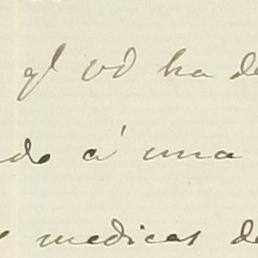 ql vd ha de
do á una
medicas de